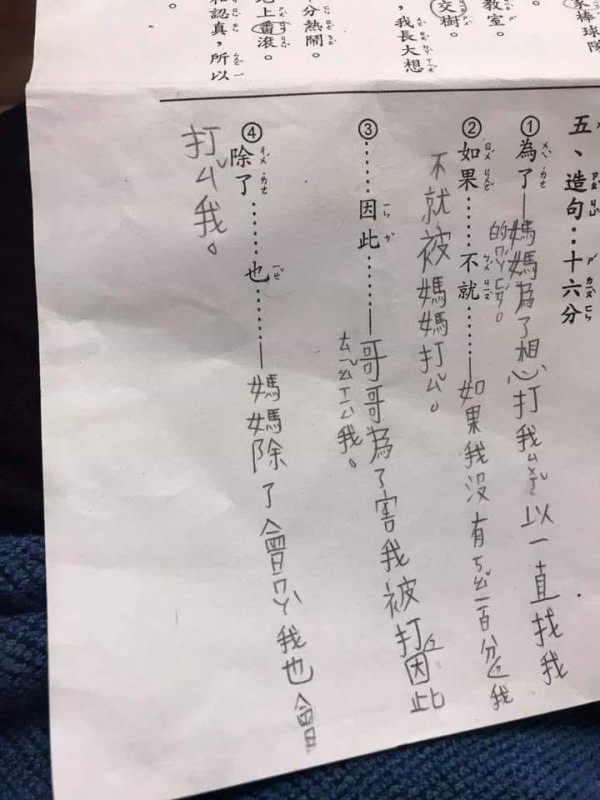 家棒球隊
教室。
交樹。
，我長大想
分熱鬧。
上番滾。
和認真，所以
。
五、造句：十六分
①為了—媽媽為了想打我ㄙㄨㄛˇ以一直找我
的ㄇㄚˊㄈㄢˊ。
②如果……不就……—如果我沒有ㄎㄠˇ一百分我
不就被媽媽打ㄙˇ。
③……因此……—哥哥為了害我被打因此
ㄊㄧㄠˇㄒㄧㄣˋ我。
④除了……也……—媽媽除了會ㄇㄚˋ我也會
打ㄙˇ我。